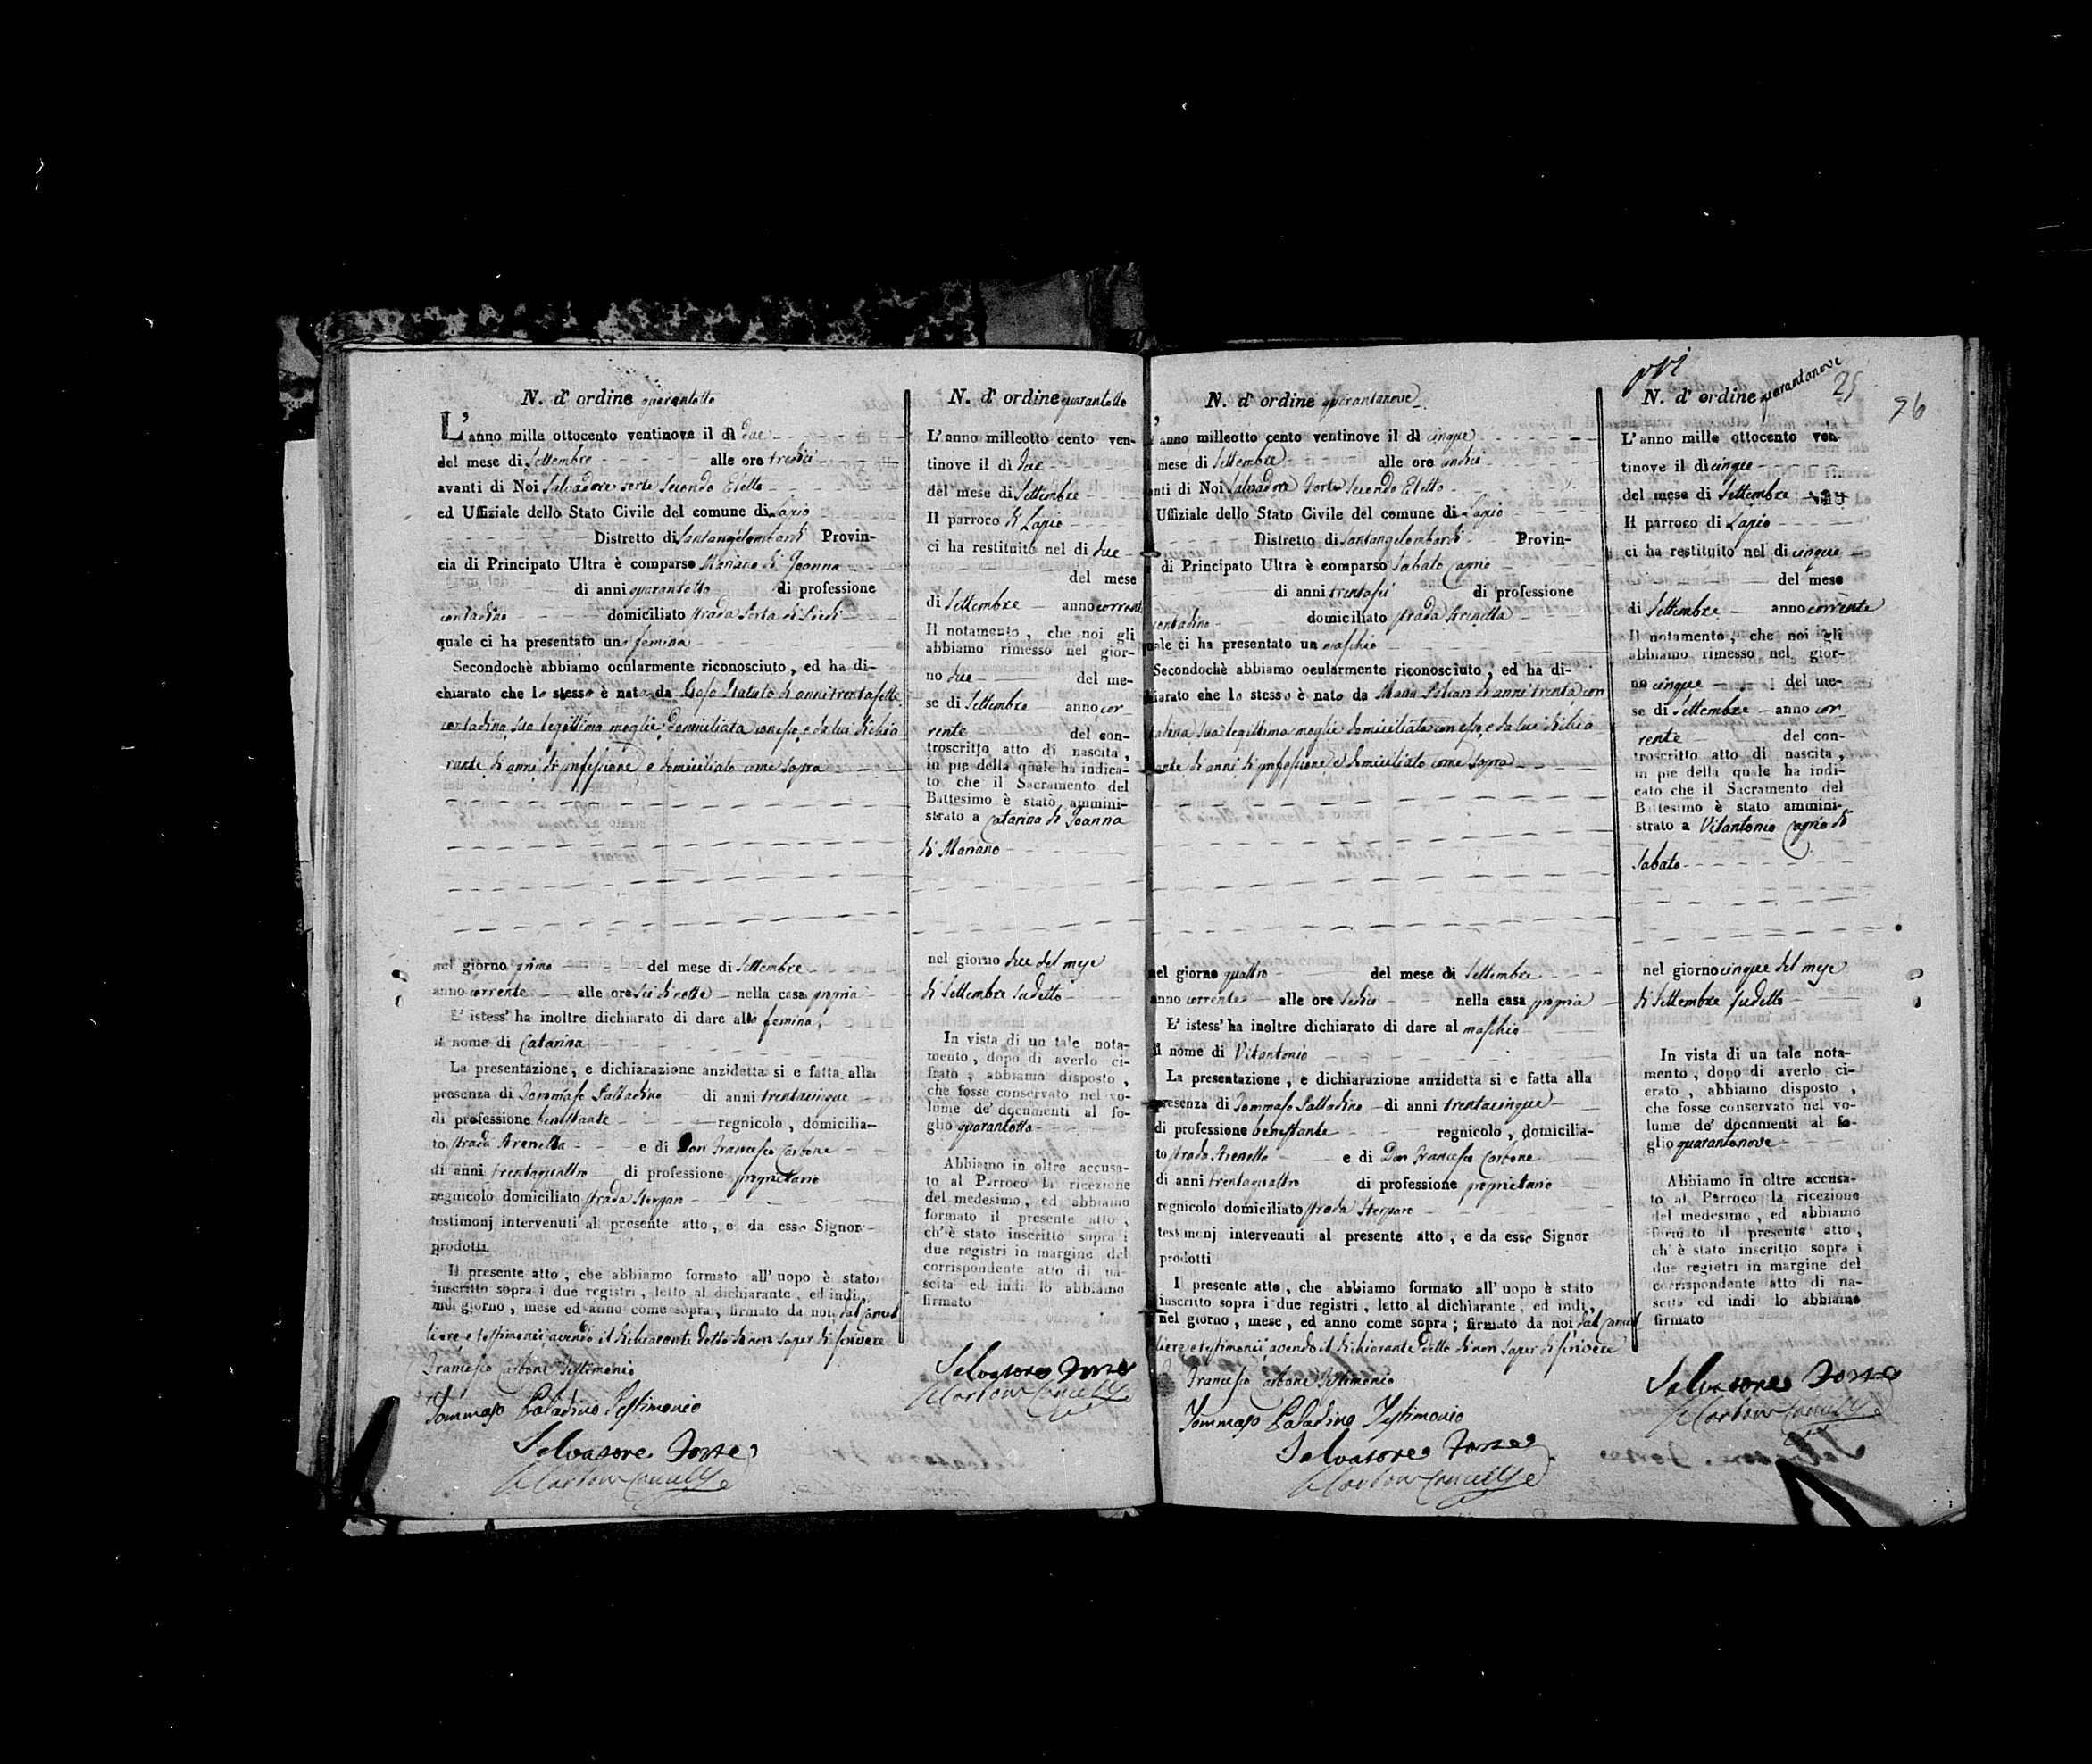 N. d' ordine quarantotto
L' anno mille ottocento ventinove il dì due
del mese di Settembre alle ore tredici
avanti di Noi Salvadore Forte Secondo Eletto
ed Uffiziale dello Stato Civile del comune di Lapio
Distretto di Santangelombardi Provin-
cia di Principato Ultra è comparso Mariano di Joanna
di anni quarantotto di professione
contadino domiciliato strada Porta di Piedi
quale ci ha presentato una femina
Secondochè abbiamo ocularmente riconosciuto, ed ha di-
chiarato che la stessa è nata da di anni trentasette
contadina sua legittima moglie domiciliata con esso, e da lui dichia
rante di anni di professione e domiciliato come sopra
nel giorno primo del mese di Settembre
anno corrente alle ore sei di notte nella casa propria
E' istess' ha inoltre dichiarato di dare alla femina
il nome di Catarina
La presentazione, e dichiarazione anzidetta si e fatta alla
presenza di Tommaso Palladino di anni trentacinque
di professione benestante regnicolo, domicilia-
to strada Arenella e di Don Francesco Carbone
di anni trentaquattro di professione proprietario
regnicolo domiciliato strada
testimonj intervenuti al presente atto, e da esso Signor
prodotti.
Il presente atto, che abbiamo formato all' uopo è stato
inscritto sopra i due registri, letto al dichiarante, ed indi,
nel giorno, mese ed anno come sopra, firmato da noi, dal Cancel
liere e testimonii, avendo il dichiarante detto di non saper di scrivere
Francesco Carbone Testimonio
Tommaso Paladino Testimonio
Salvatore Forte
N. d' ordine quarantotto
L' anno milleotto cento ven-
tinove il di due
del mese di Settembre
Il parroco di Lapio
ci ha restituito nel di due
del mese
di Settembre anno corrente
Il notamento, che noi gli
abbiamo rimesso nel gior-
no due del me-
se di Settembre anno cor-
rente del con-
troscritto atto di nascita,
in piè della quale ha indica-
to, che il Sacramento del
Battesimo è stato ammini-
strato a Catarina di Joanna
di Mariano
nel giorno due del mese
di Settembre sudetto
In vista di un tale nota-
mento, dopo di averlo ci-
frato, abbiamo disposto,
che fosse conservato nel vo-
lume de' documenti al fo-
glio quarantotto
Abbiamo in oltre accusa-
to al Parroco la ricezione
del medesimo, ed abbiamo
formato il presente atto,
ch' è stato inscritto sopra i
due registri in margine del
corrispondente atto di na-
scita ed indi lo abbiamo
firmato
Salvatore Forte
N. d' ordine quarantanove
anno milleotto cento ventinove il dì cinque
mese di Settembre alle ore undici
nti di Noi Salvadore Forte Secondo Eletto
Uffiziale dello Stato Civile del comune di Lapio
Distretto di Santangelombardi Provin-
di Principato Ultra è comparso Sabato Caprio
di anni trentasei di professione
contadino domiciliato strada Arenella
uale ci ha presentato un maschio
Secondochè abbiamo ocularmente riconosciuto, ed ha di-
hiarato che lo stesso è nato da Maria di anni trenta con
tadina sua legittima moglie domiciliata con esso, e da lui dichia
rante di anni di professione e domiciliato come sopra
nel giorno quattro del mese di Settembre
anno corrente alle ore sedici nella casa propria
E' istess' ha inoltre dichiarato di dare al maschio
il nome di Vitantonio
La presentazione, e dichiarazione anzidetta si e fatta alla
presenza di Tommaso Palladino di anni trentacinque
di professione benestante regnicolo, domicilia-
to strada Arenella e di Don Francesco Carbone
di anni trentaquattro di professione proprietario
regnicolo domiciliato strada
testimonj intervenuti al presente atto, e da esso Signor
prodotti
Il presente atto, che abbiamo formato all' uopo è stato
inscritto sopra i due registri, letto al dichiarante, ed indi,
nel giorno, mese, ed anno come sopra; firmato da noi dal Cancel
liere e testimonii, avendo il dichiarante detto di non saper di scrivere
Francesco Carbone Testimonio
Tommaso Paladino Testimonio
Salvatore Forte
25
26
N. d' ordine quarantanove
L' anno mille ottocento ven-
tinove il di cinque
del mese di Settembre
Il parroco di Lapio
ci ha restituito nel di cinque
del mese
di Settembre anno corrente
Il notamento, che noi gli
abbiamo rimesso nel gior-
no cinque del me-
se di Settembre anno cor-
rente del con-
troscritto atto di nascita,
in piè della quale ha indi-
cato che il Sacramento del
Battesimo è stato ammini-
strato a Vitantonio Caprio di
Sabato
nel giorno cinque del mese
di Settembre sudetto
In vista di un tale nota-
mento, dopo di averlo ci-
erato, abbiamo disposto,
che fosse conservato nel vo-
lume de' documenti al fo-
glio quarantanove
Abbiamo in oltre accusa-
to al Parroco la ricezione
del medesimo, ed abbiamo
formato il presente atto,
ch' è stato inscritto sopra i
due registri in margine del
corrispondente atto di na-
scita ed indi lo abbiamo
firmato
Salvatore Forte